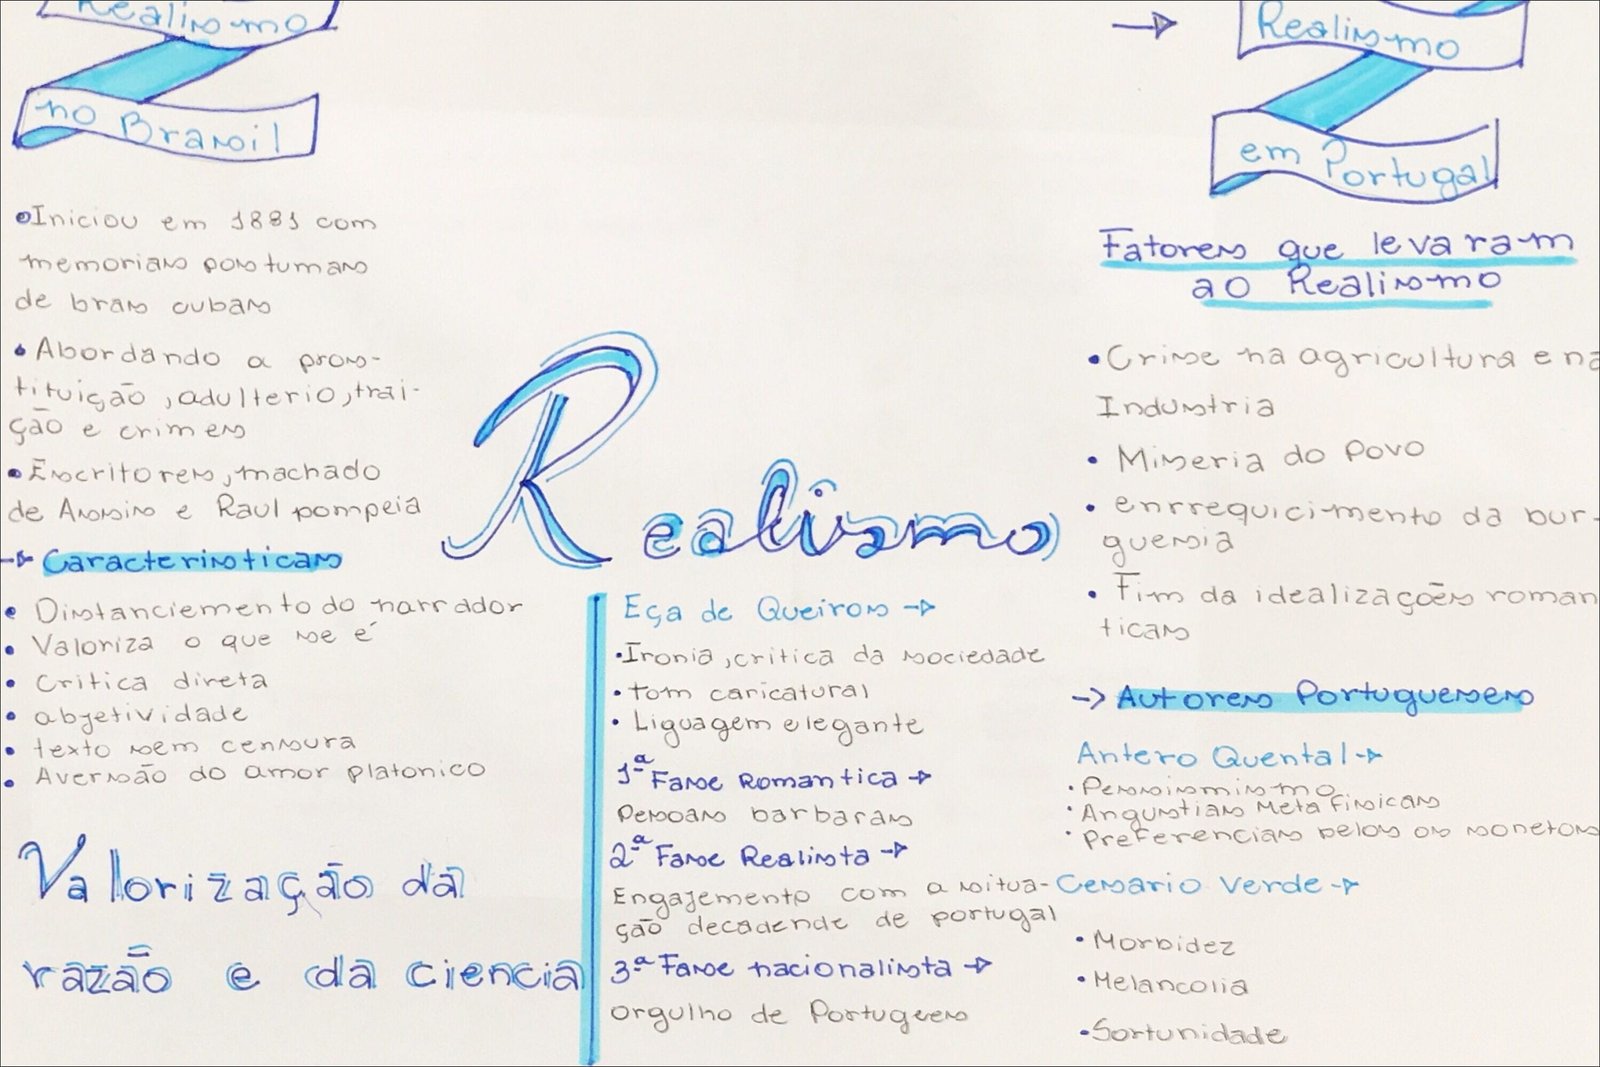 Realismo
no Brasil
•Iniciou em 1881 com
memorias postumas
de bras cubas
•Abordando a pros-
tituição, adulterio, trai-
ção e crimes
•Escritores, machado
de Assis e Raul pompeia
→ Caracteristicas
• Distanciemento do narrador
• Valoriza o que se é
• Critica direta
• abjetividade
• texto sem censura
• Aversão do amor platonico
Valorização da
razão e da ciencia
Realismo
Eça de Queiros →
•Ironia, critica da sociedade
• tom caricatural
• Liguagem elegante
1ª Fase Romantica →
Pessoas barbaras
2ª Fase Realista →
Engajemento com a situa-
ção decadende de portugal
3ª Fase nacionalista →
orgulho de Portugees
→ Realismo
em Portugal
Fatores que levaram
ao Realismo
•Crise na agricultura e na
Industria
• Miseria do Povo
• enrrequicimento da bur-
guesia
• Fim da idealizações roman
ticas
→ Autores Portugueses
Antero Quental →
• Pessimismo
• Angustias Metafisicas
• Preferencias pelos os sonetos
Cesario Verde →
• Morbidez
• Melancolia
• Sortunidade